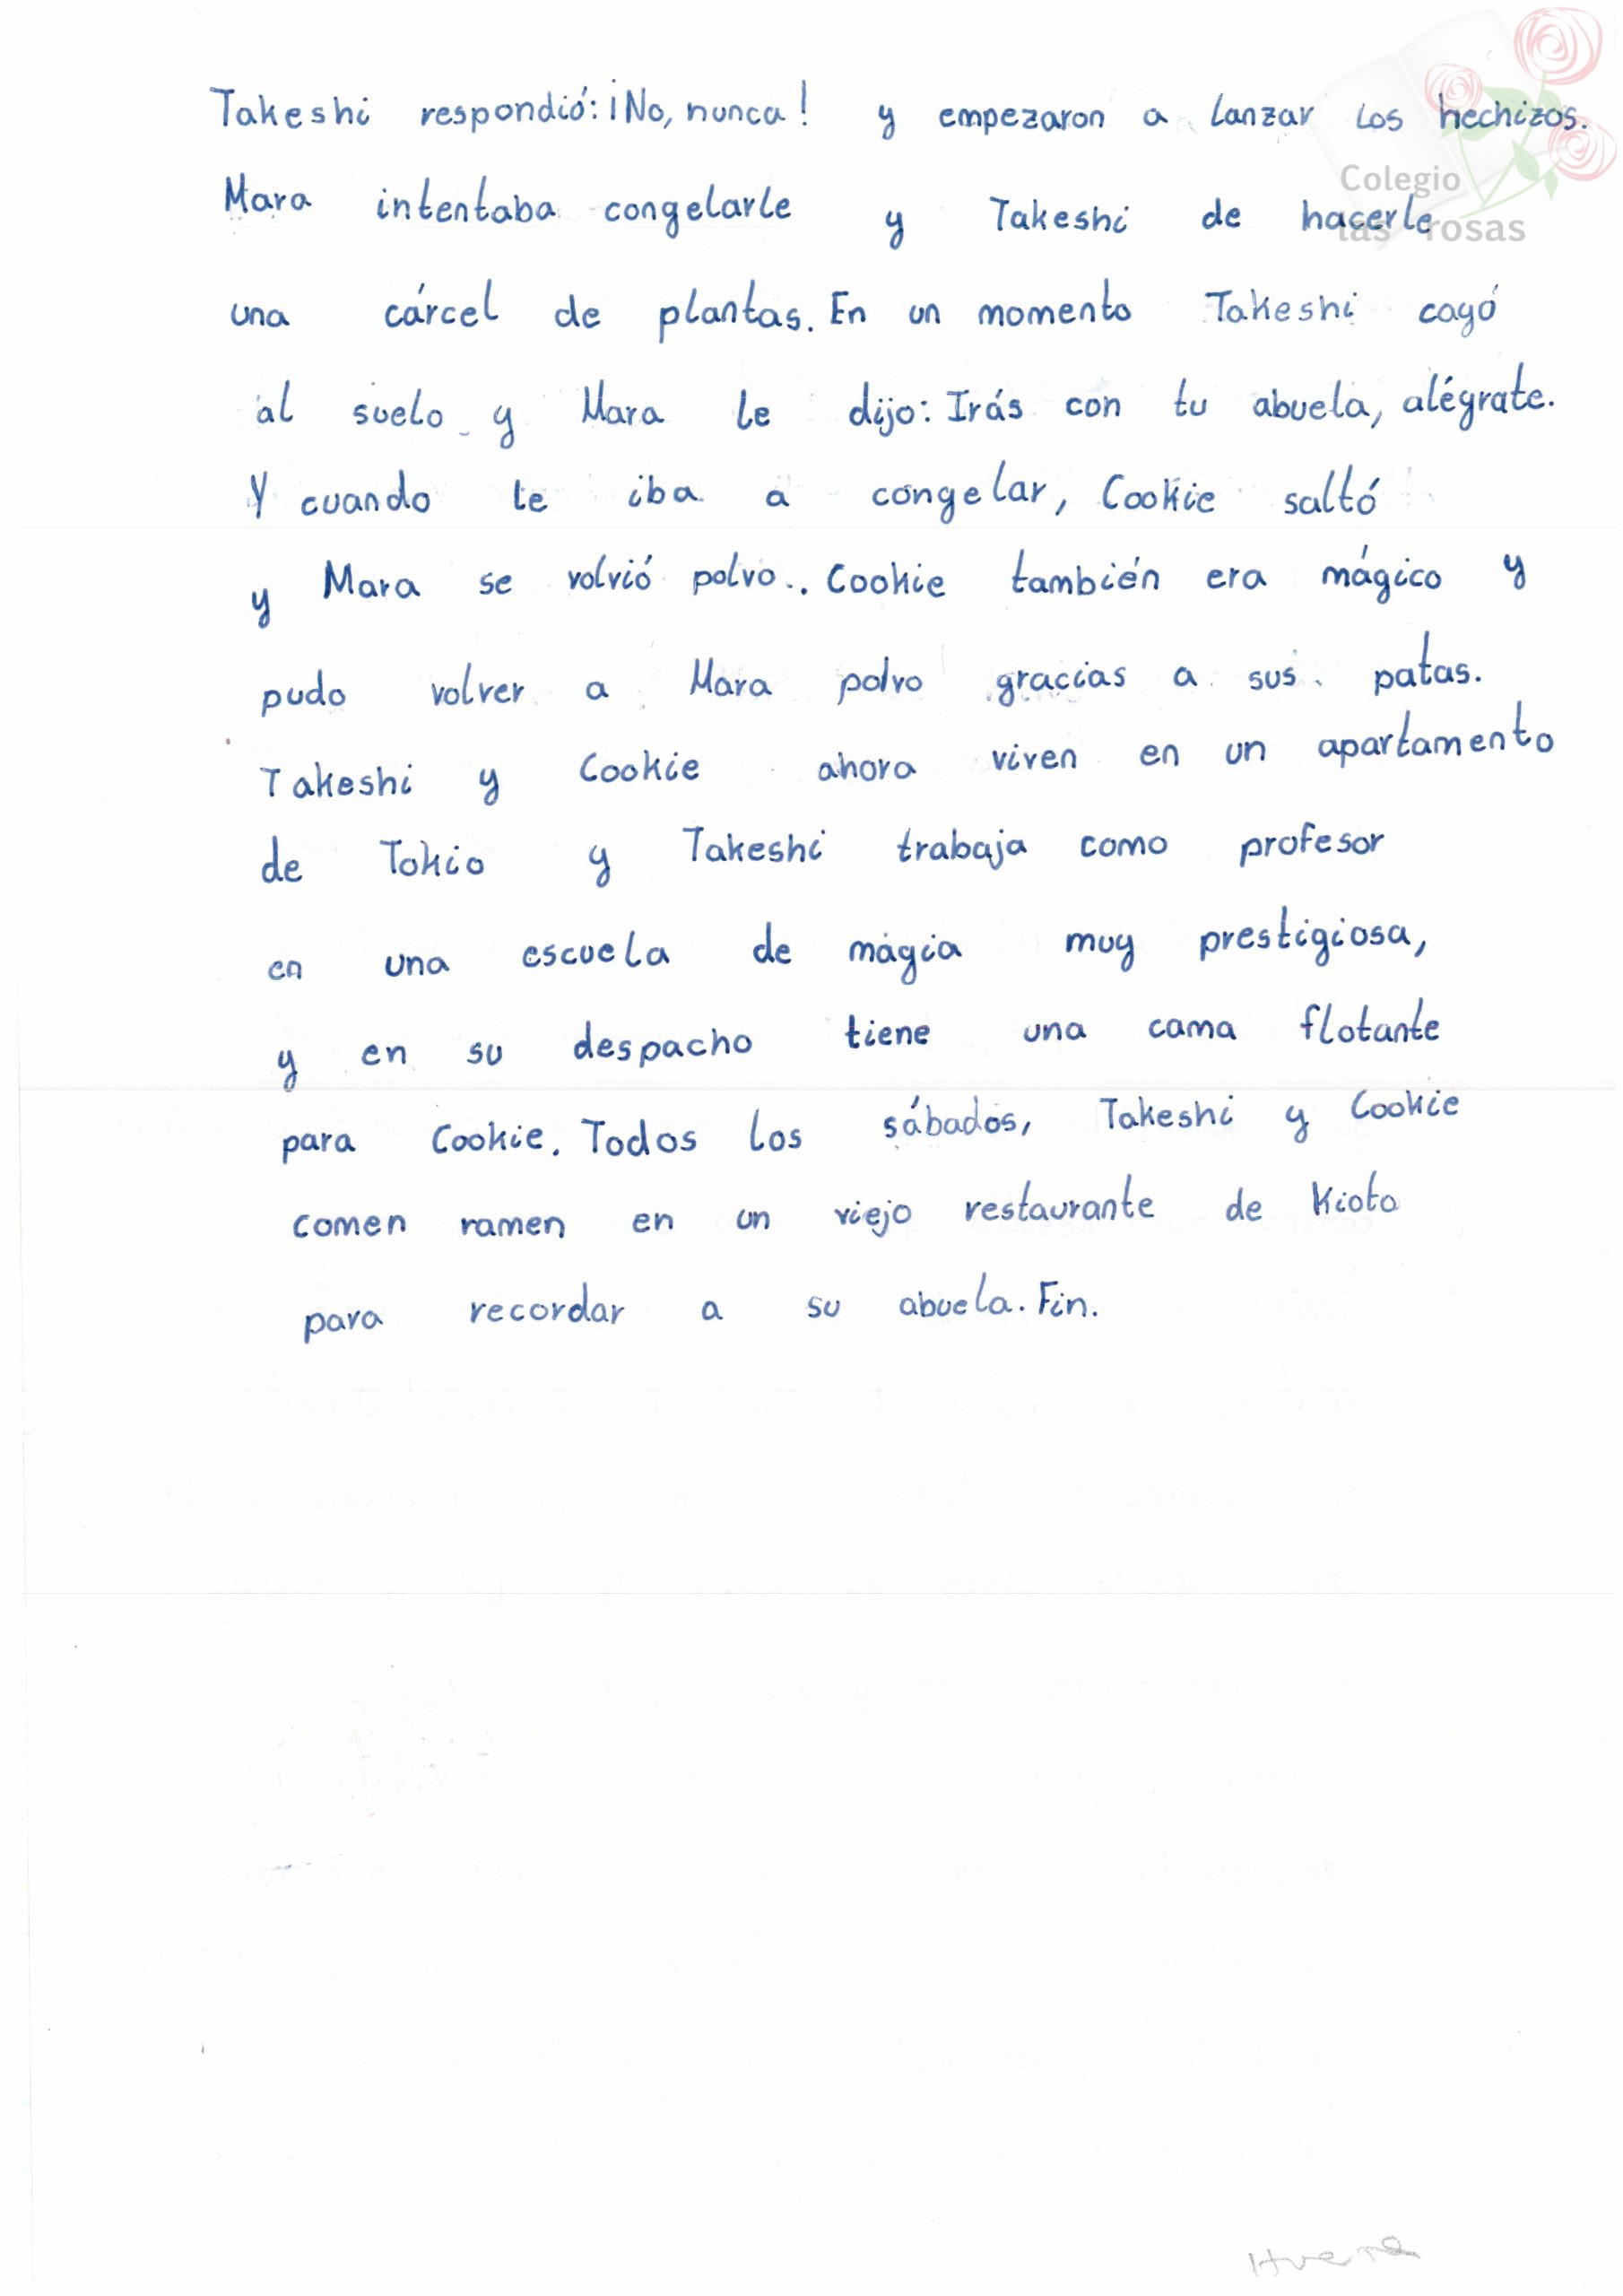 Takeshi respondió: ¡No, nunca! y empezaron a lanzar los hechizos.
Colegio
las rosas
Mara intentaba congelarle y Takeshi de hacerle
una cárcel de plantas. En un momento Takeshi cayó
al suelo y Mara le dijo: Irás con tu abuela, alégrate.
Y cuando le iba a congelar, Cookie saltó
y Mara se volvió polvo.. Cookie también era mágico y
pudo volver a Mara polvo gracias a sus patas.
Takeshi y Cookie ahora viven en un apartamento
de Tokio y Takeshi trabaja como profesor
en una escuela de magia muy prestigiosa,
y en su despacho tiene una cama flotante
para Cookie. Todos los sábados, Takeshi y Cookie
comen ramen en un viejo restaurante de Kioto
para recordar a su abuela. Fin.